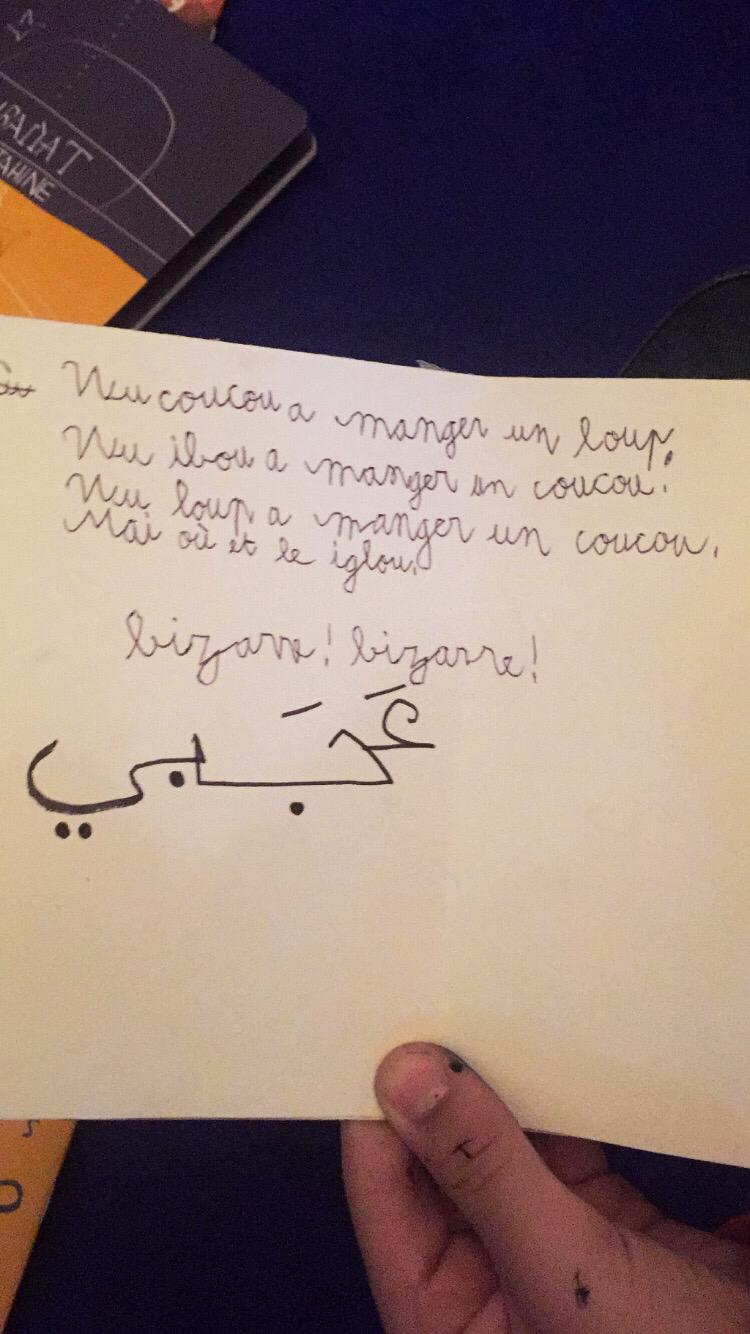 Un coucou a manger un loup.
Un ibou a manger un coucou.
Un loup a manger un coucou.
Mai où et le iglou.
bizarre! bizarre!
عَجَبي